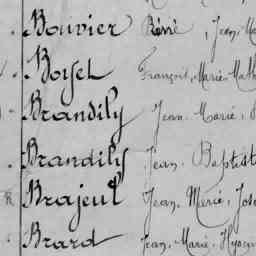 Bouvier René, Jean-Ma
Boisel François, Marie, Math
Brandily Jean Marie,
Brandily Jean Baptist
Brajeul Jean, Marie, Jose
Brard Jean, Marie, Hyacin